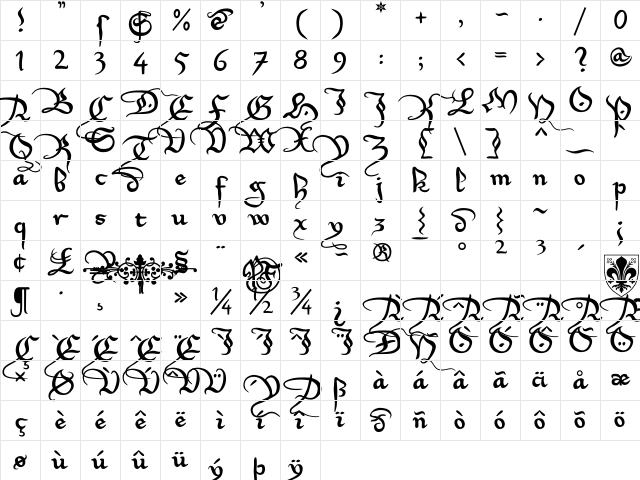 ! " ſ $ % & ' ( ) * + , ~ . / 0
1 2 3 4 5 6 7 8 9 : ; < = > ? @
A B C D E F G H I J K L M N O P
Q R S T U V W X Y Z [ \ ] ^ _
a b c d e f g h i j k l m n o p
q r s t u v w x y z { } ~ ¡
¢ £ § ¨ « ® ° 2 3 ´
¶ · ¸ » ¼ ½ ¾ ¿ À Á Â Ã Ä Å
Ç È É Ê Ë Ì Í Î Ï Ð Ñ Ò Ó Ô Õ Ö
× Ø Ù Ú Û Ü Ý Þ ß à á â ã ä å æ
ç è é ê ë ì í î ï ð ñ ò ó ô õ ö
ø ù ú û ü ý þ ÿ